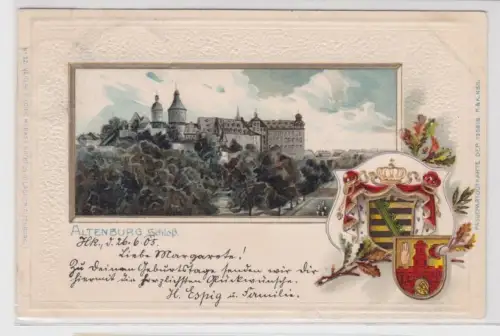 ALTENBURG. Schloß.
Hk, d. 26.6.05.
Liebe Margarete!
Zu Deinem Geburtstage senden wir Dir
hiermit die herzlichsten Glückwünsche.
H. Espig u. Familie.
PASSEPARTOUT-KARTE